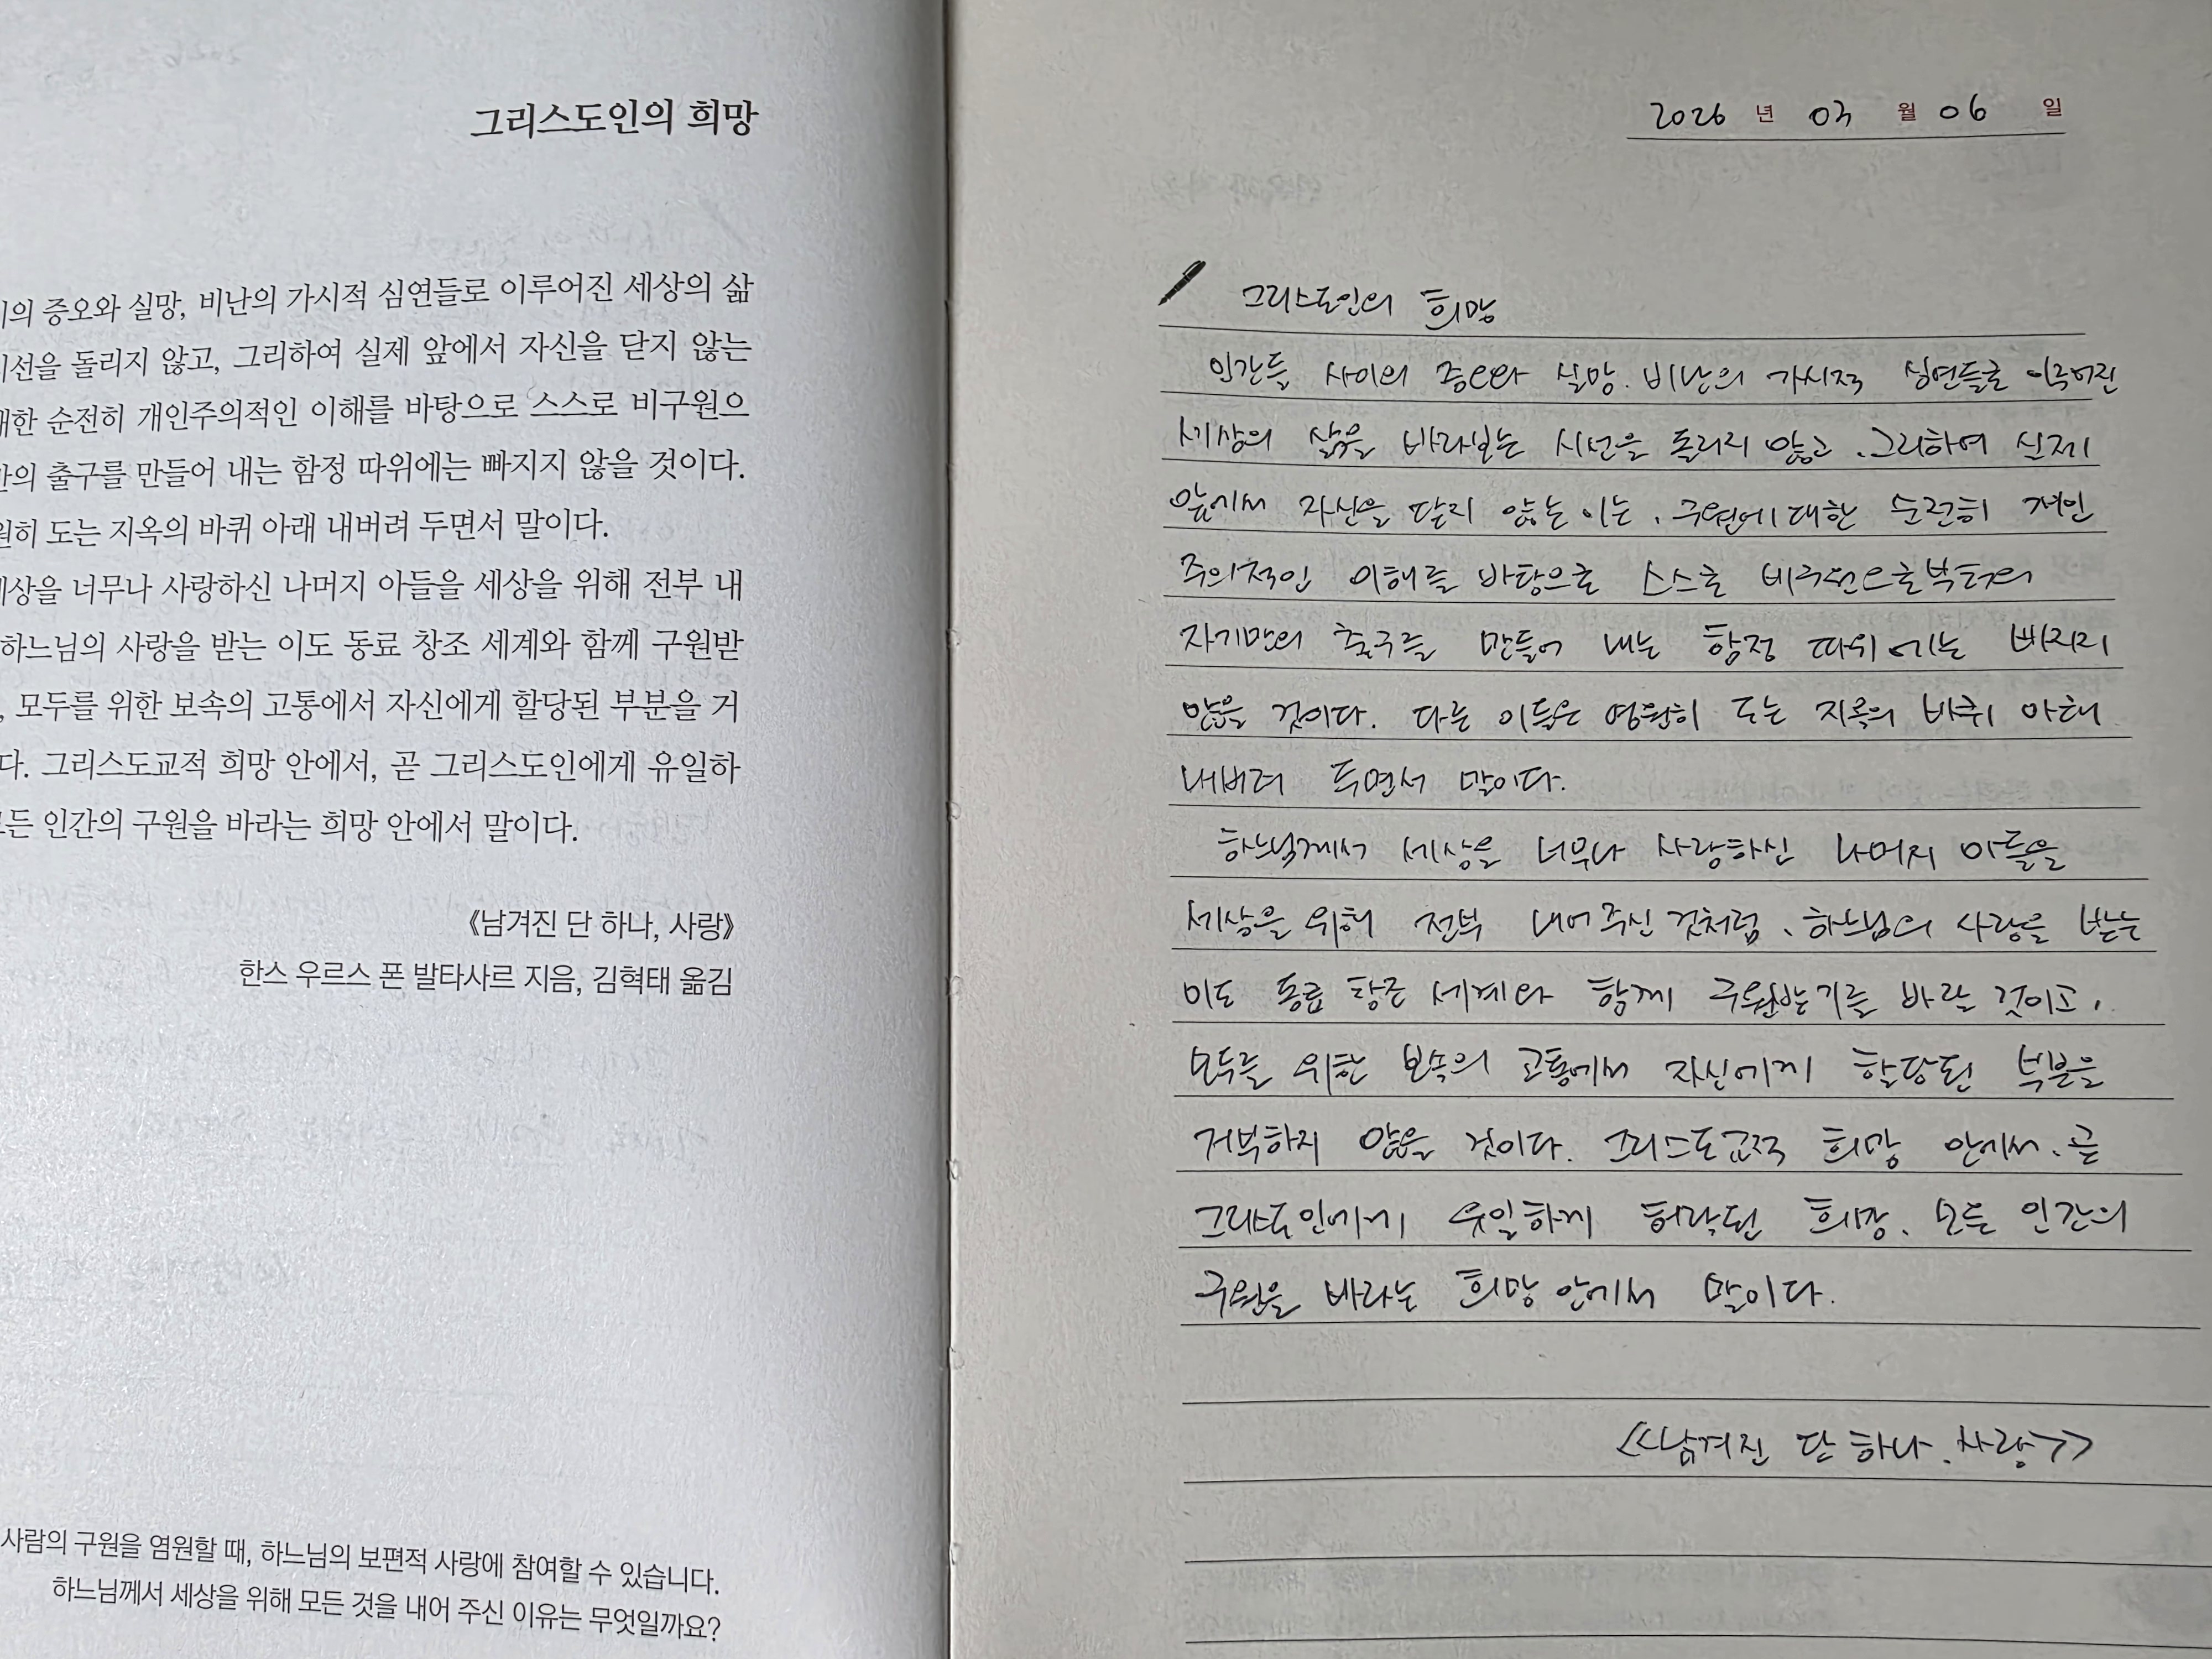 그리스도인의 희망
의 증오와 실망, 비난의 가시적 심연들로 이루어진 세상의 삶
시선을 돌리지 않고, 그리하여 실제 앞에서 자신을 닫지 않는
대한 순전히 개인주의적인 이해를 바탕으로 스스로 비구원으
만의 출구를 만들어 내는 함정 따위에는 빠지지 않을 것이다.
원히 도는 지옥의 바퀴 아래 내버려 두면서 말이다.
세상을 너무나 사랑하신 나머지 아들을 세상을 위해 전부 내
하느님의 사랑을 받는 이도 동료 창조 세계와 함께 구원받
, 모두를 위한 보속의 고통에서 자신에게 할당된 부분을 거
다. 그리스도교적 희망 안에서, 곧 그리스도인에게 유일하
모든 인간의 구원을 바라는 희망 안에서 말이다.
《남겨진 단 하나, 사랑》
한스 우르스 폰 발타사르 지음, 김혁태 옮김
사람의 구원을 염원할 때, 하느님의 보편적 사랑에 참여할 수 있습니다.
하느님께서 세상을 위해 모든 것을 내어 주신 이유는 무엇일까요?
2026 년 03 월 06 일
그리스도인의 희망
인간들 사이의 증오와 실망, 비난의 가시적 심연들로 이루어진
세상의 삶을 바라보는 시선을 돌리지 않고, 그리하여 실제
앞에서 자신을 닫지 않는 이는, 구원에 대한 순전히 개인
주의적인 이해를 바탕으로 스스로 비구원으로부터의
자기만의 출구를 만들어 내는 함정 따위에는 빠지지
않을 것이다. 다른 이들은 영원히 도는 지옥의 바퀴 아래
내버려 두면서 말이다.
하느님께서 세상을 너무나 사랑하신 나머지 아들을
세상을 위해 전부 내어 주신 것처럼, 하느님의 사랑을 받는
이도 동료 창조 세계와 함께 구원받기를 바랄 것이고,
모두를 위한 보속의 고통에서 자신에게 할당된 부분을
거부하지 않을 것이다. 그리스도교적 희망 안에서, 곧
그리스도인에게 유일하게 허락된 희망, 모든 인간의
구원을 바라는 희망 안에서 말이다.
<<남겨진 단 하나, 사랑>>